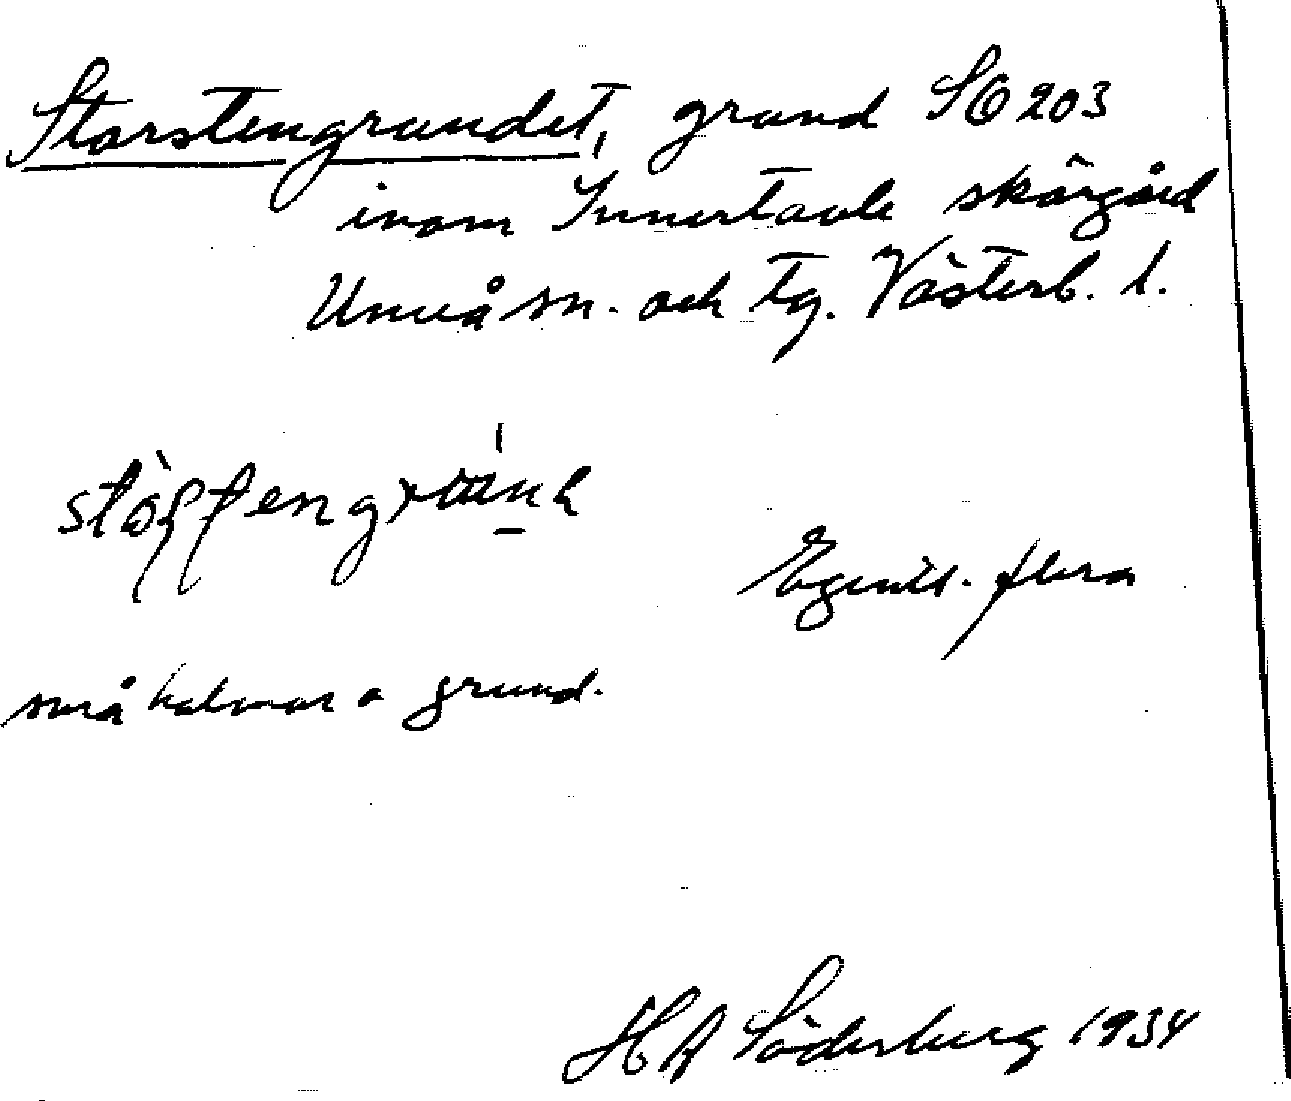 Storstengrundet, grund SO 203
inom Innertavle skärgård
Umeå sn. och tg. Västerb. l.
Egentl. flera
små holmar o grund.
HA Söderberg 1934